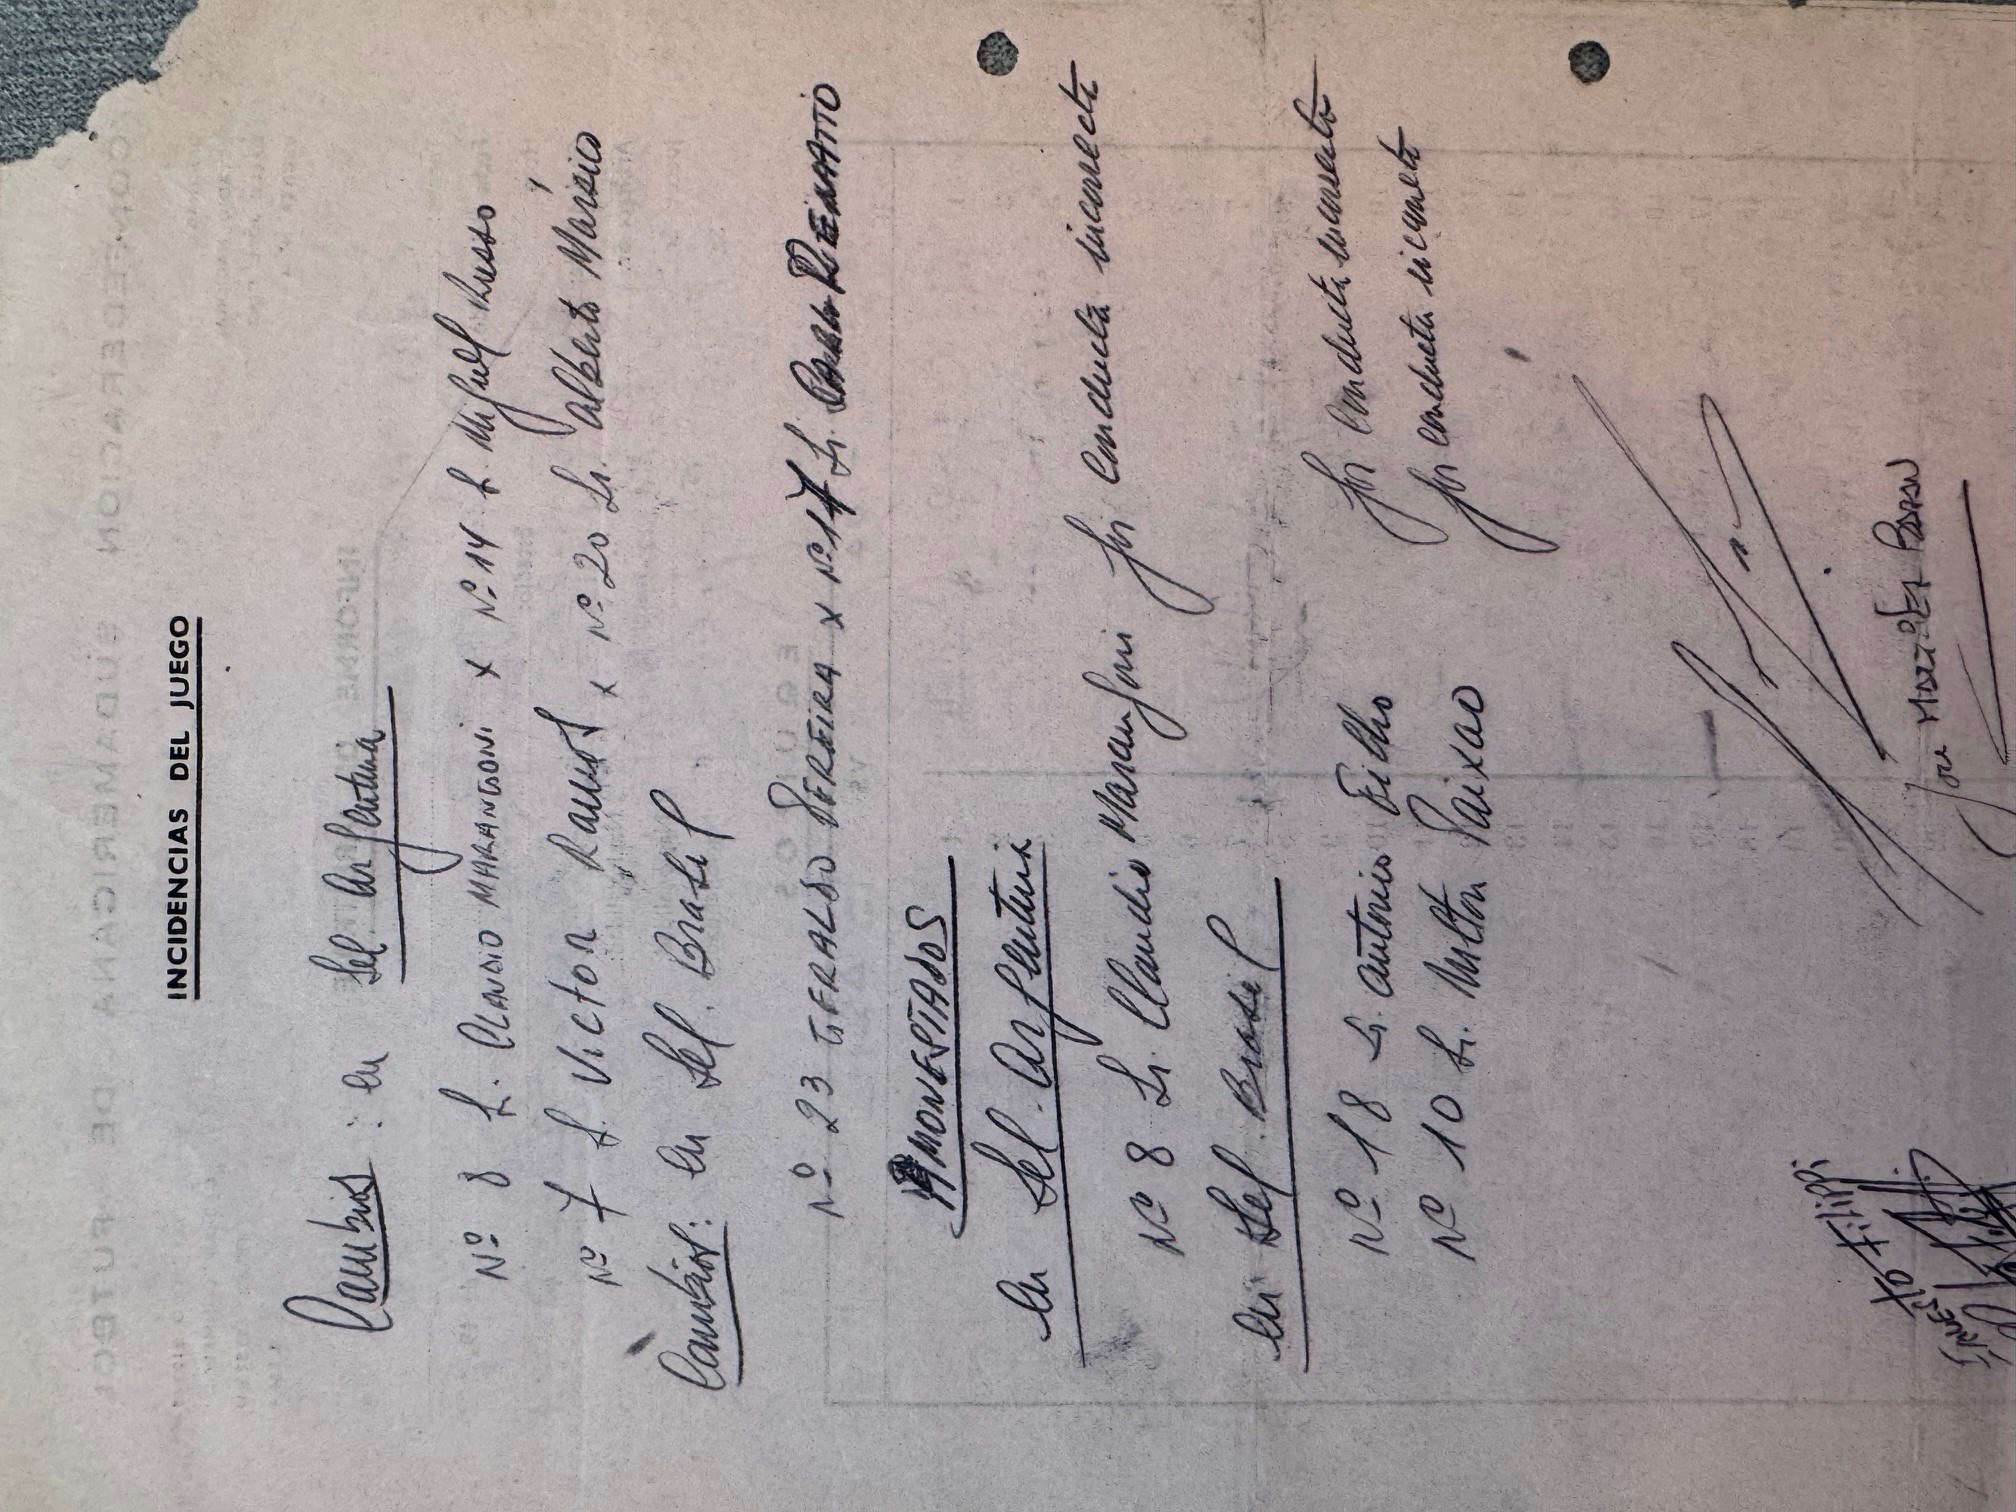 INCIDENCIAS DEL JUEGO
Cambios : en Sel Argentina
Nº 8 S. CLAUDIO MARANGONI x Nº 14 S. Miguel Russo
Nº 7 S. Victor Ramos x Nº 20 Sr. Alberto Marsico
Cambios: en Sel. Brasil
Nº 23 GERALDO PEREIRA x Nº 17 Sr. RENATTO
AMONESTADOS
en Sel. Argentina
Nº 8 Sr. Claudio Marangoni por conducta incorrecta
en Sel. Brasil
Nº 18 Sr. Antonio Filho por conducta incorrecta
Nº 10 Sr. Milton Paixao por conducta incorrecta
ERNESTO FILIPPI